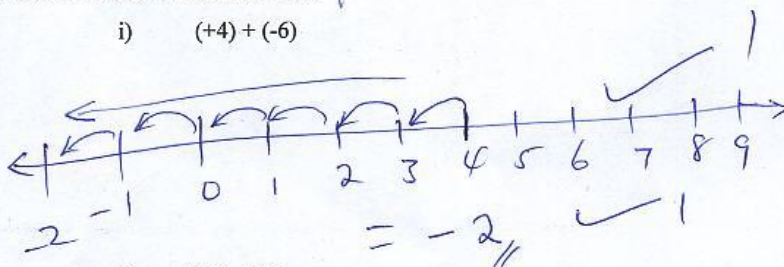 i) (+4) + (-6)
1
-2 -1 0 1 2 3 4 5 6 7 8 9
= -2 1